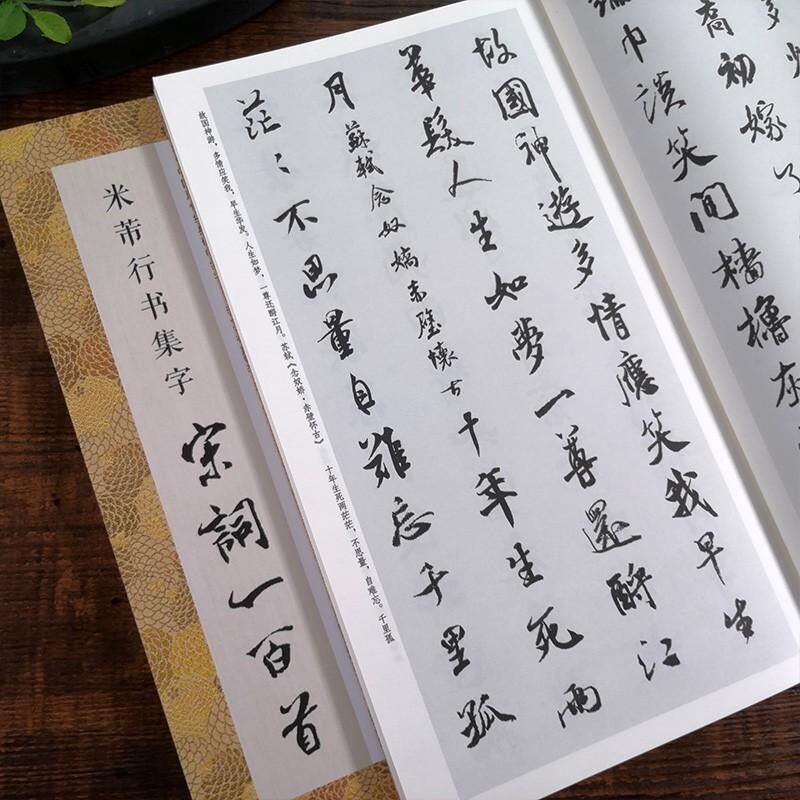 多
喬初嫁了
綸巾談笑間檣櫓灰
故國神遊多情應笑我早生
華髮人生如夢一尊還酹江
月蘇軾念奴嬌赤壁懷古十年生死兩
茫〻不思量自難忘千里孤
故国神游，多情应笑我，早生华发。人生如梦，一尊还酹江月。苏轼《念奴娇·赤壁怀古》 十年生死两茫茫，不思量，自难忘。千里孤
米芾行书集字
宋詞一百首